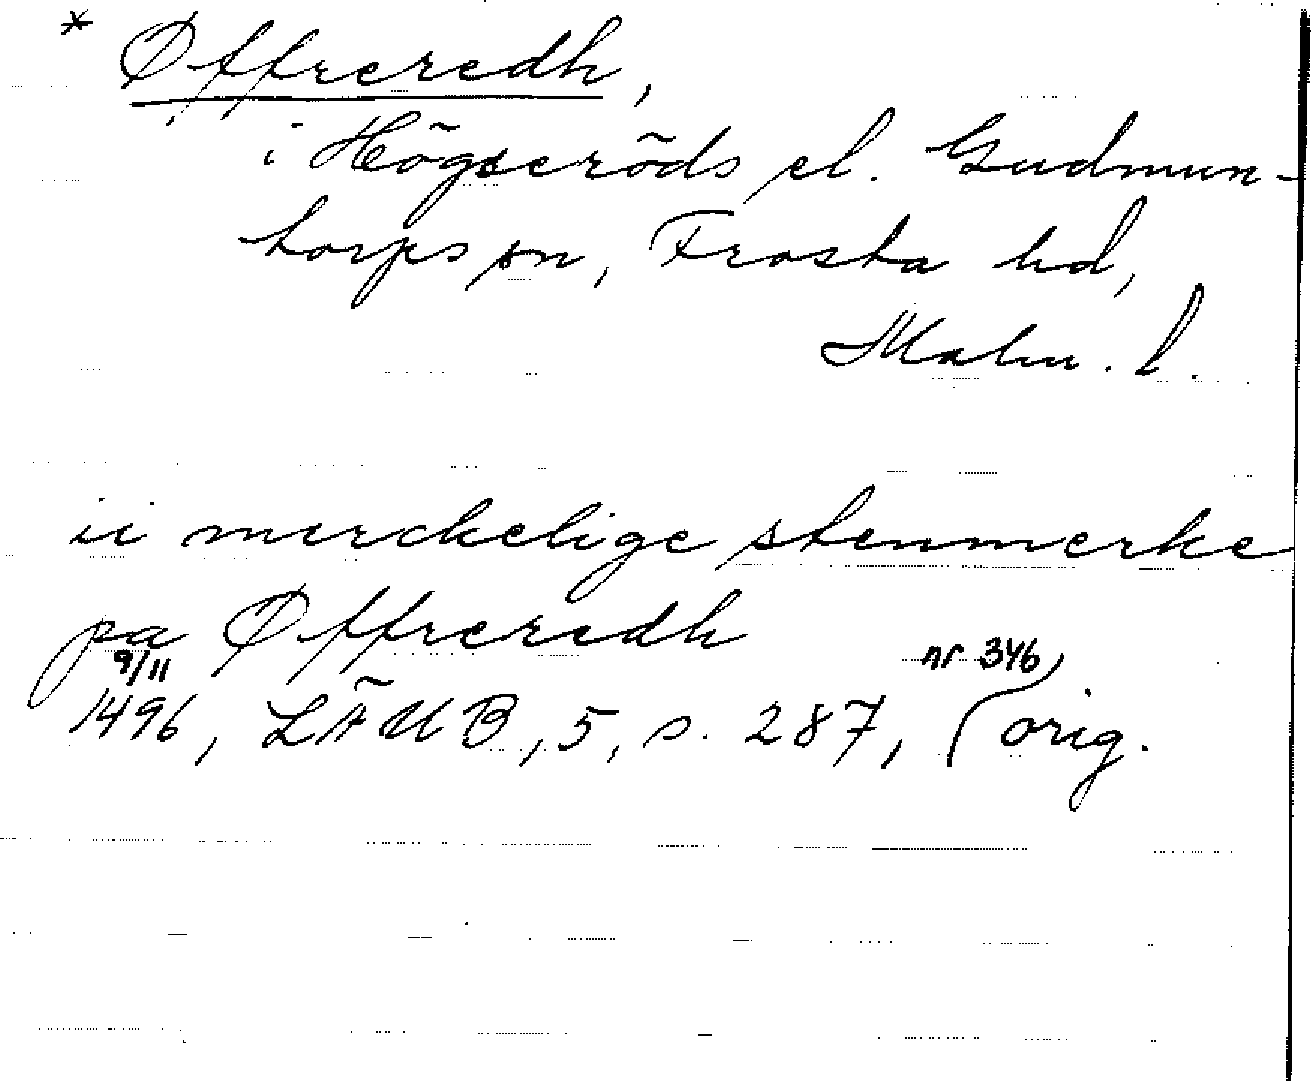 * Øffreredh,
i Högseröds el. Gudmun-
torps sn, Frosta hd,
Malm. l.
ii merckelige stenmerke
pa Øffreredh
9/11 nr 346
1496, LÄUB, 5, s. 287, (orig.